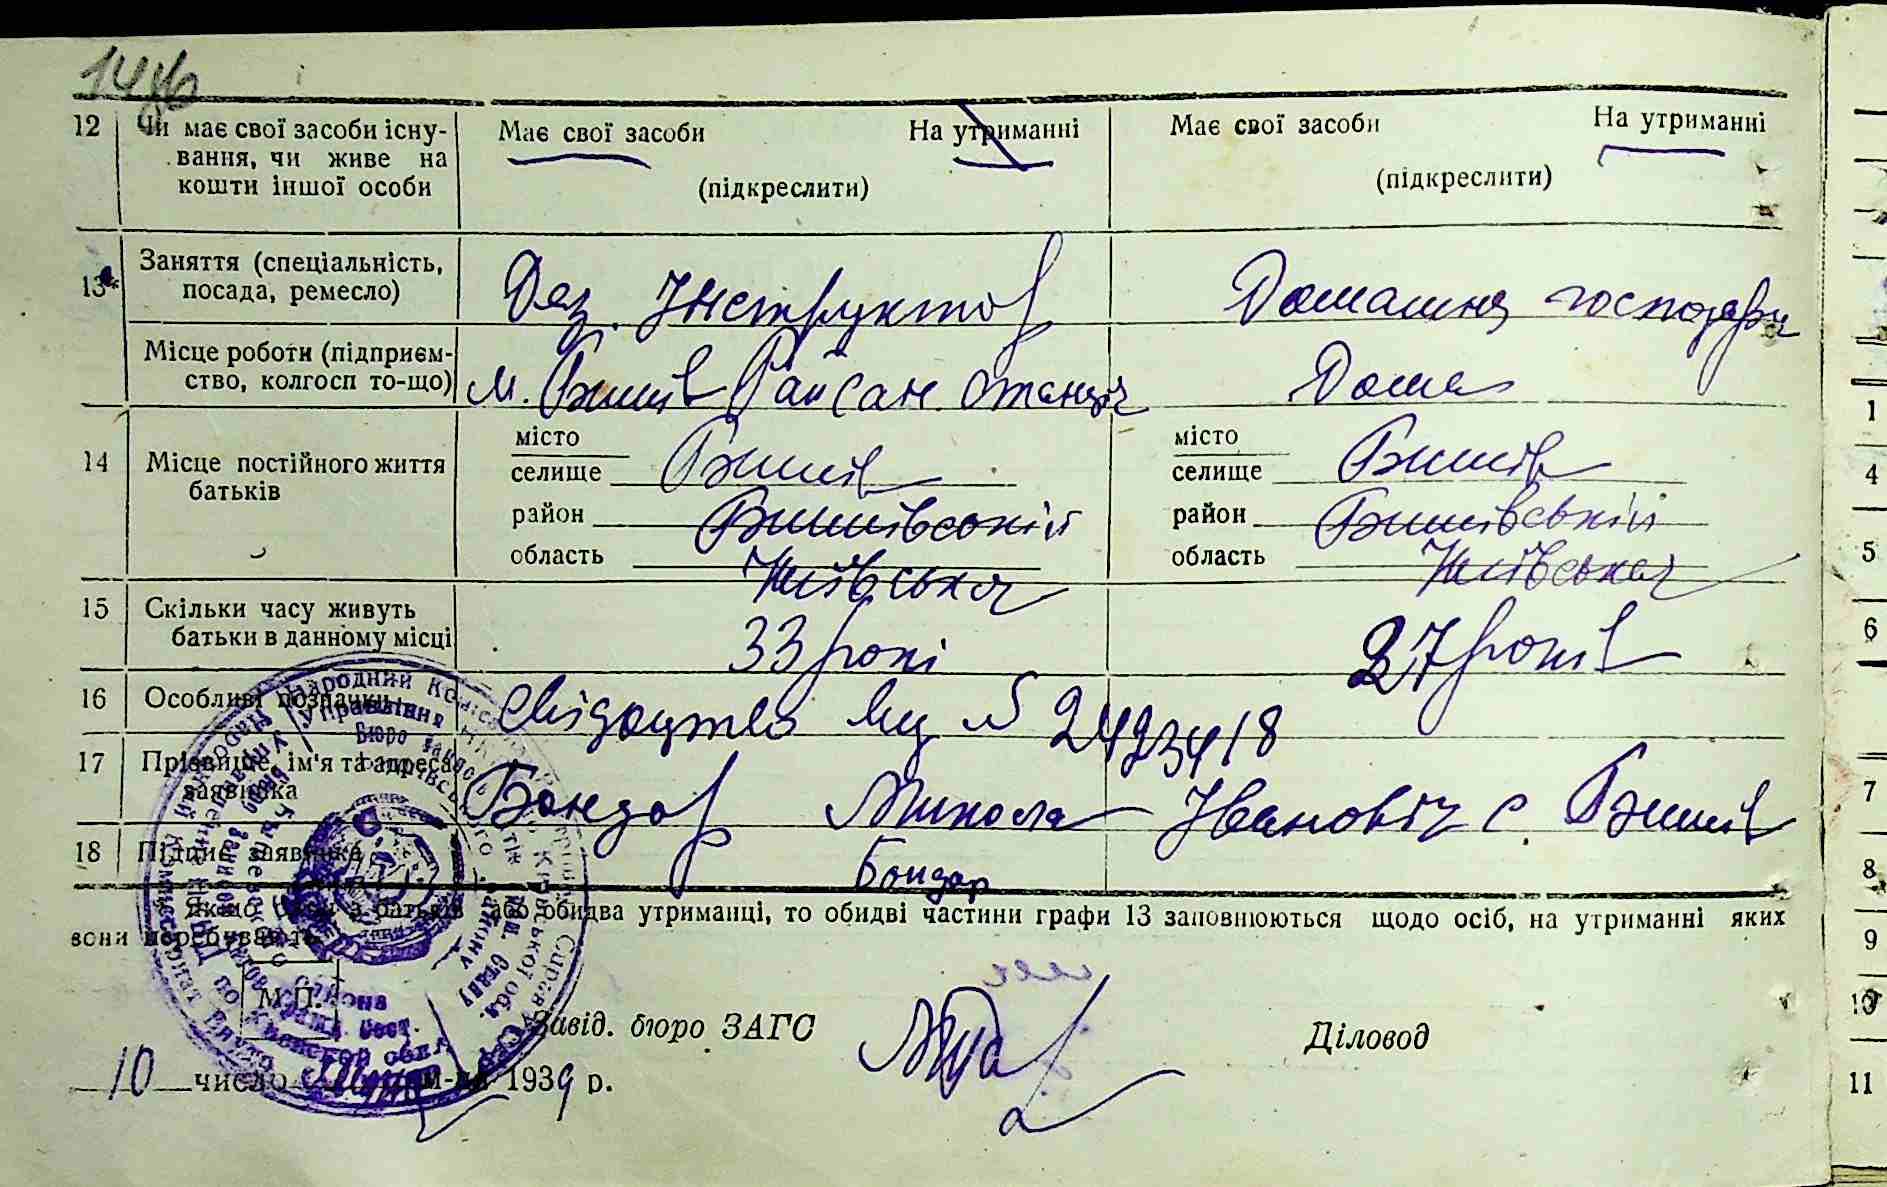 12 Чи має свої засоби існу- Має свої засоби На утриманні Має свої засоби На утриманні
вання, чи живе на
кошти іншої особи (підкреслити) (підкреслити)
13 Заняття (спеціальність, Дез. Інструктор Домашня господарк
посада, ремесло)
Місце роботи (підприєм- м. Бишів Райсан. станція Дома
ство, колгосп то-що)
14 Місце постійного життя місто місто
батьків селище Бишів селище Бишів
район Бишівський район Бишівський
область Київська область Київська
15 Скільки часу живуть 33 рокі 27 років
батьки в данному місці
16 Особливі позначки Свідоцтво № 2423418
17 Прізвище, ім'я та адреса Бондар Микола Іванович с. Бишів
заявника
18 Підпис заявника Бондар
Якщо один з батьків або обидва утриманці, то обидві частини графи 13 заповнюються щодо осіб, на утриманні яких
вони перебувають.
М.П.
Завід. бюро ЗАГС Діловод
10 число м-ця 1939 р.
1
4
5
6
7
8
9
10
11